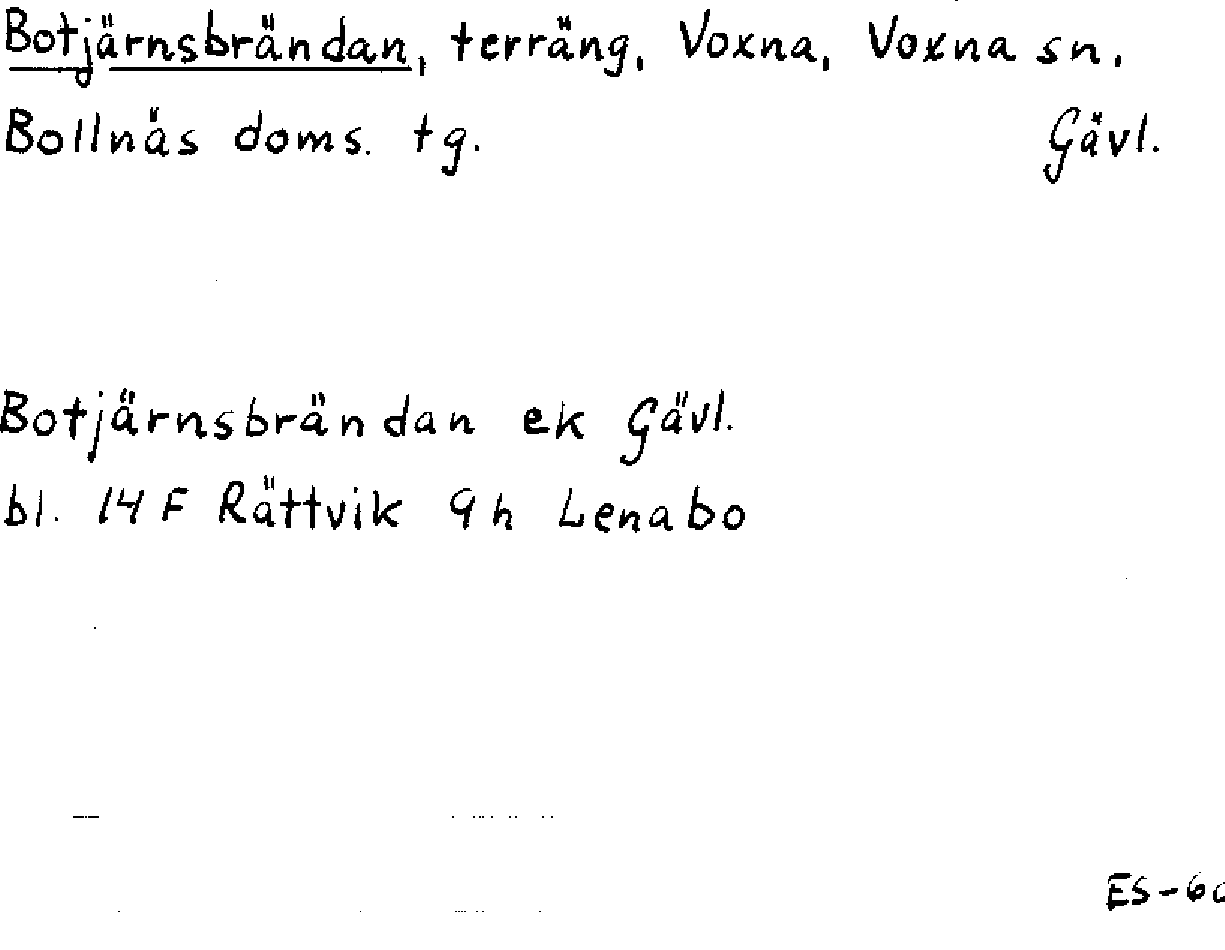 Botjärnsbrändan, terräng, Voxna, Voxna sn.
Bollnäs doms. tg. Gävl.
Botjärnsbrändan ek Gävl.
bl. 14 F Rättvik 9h Lenabo
ES-60